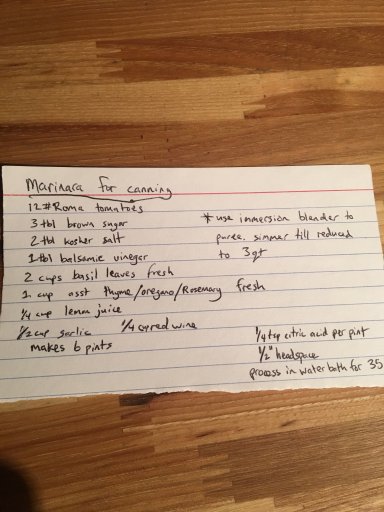 Marinara for canning
12# Roma tomatoes
3 tbl brown sugar
2 tbl kosher salt
1 tbl balsamic vinegar
2 cups basil leaves fresh
1 cup asst thyme/oregano/Rosemary fresh
1/4 cup lemon juice
1/2 cup garlic 1/4 cup red wine
makes 6 pints
* use immersion blender to
puree. simmer till reduced
to 3 qt
1/4 tsp citric acid per pint
1/2" headspace
process in water bath for 35